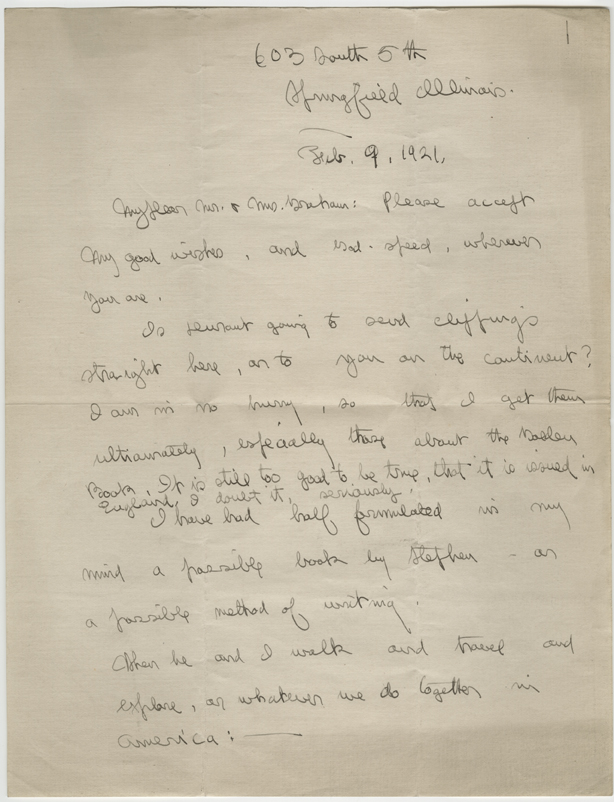 1
603 South 5th
Springfield Illinois.
Feb. 9, 1921.
My dear Mr. & Mrs. Graham: Please accept
my good wishes, and God-speed, wherever
you are.
Is going to send clippings
straight here, or to you on the continent?
I am in no hurry, so that I get them
ultimately, especially those about the Golden
Book. It is still too good to be true, that it is issued in
England, I doubt it, seriously.
I have had half formulated in my
mind a possible book by Stephen – or
a possible method of writing.
When he and I walk and travel and
explore, or whatever we do together in
America: —